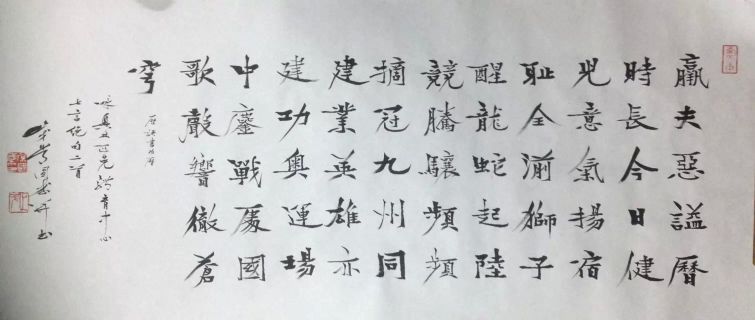 羸夫惡謚曆
時長今日健
兒意氣揚宿
耻全湔獅子
醒龍蛇起陸
競騰驤頻頻
摘冠九州同
建業英雄亦
建功奧運場
中鏖戰處國
歌聲響徹蒼
穹
七言絕句二首